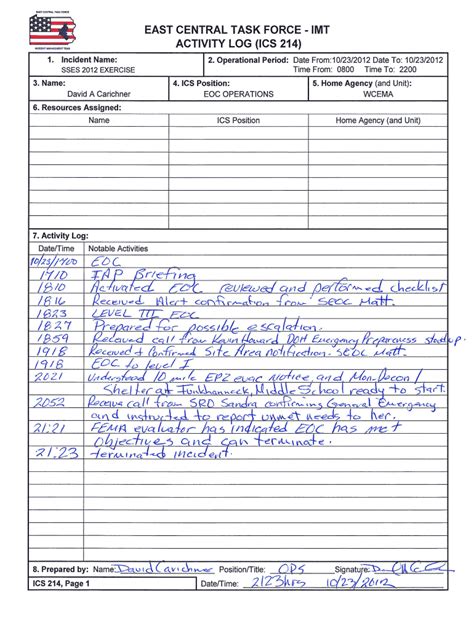 EAST CENTRAL TASK FORCE
INCIDENT MANAGEMENT TEAM
EAST CENTRAL TASK FORCE - IMT
ACTIVITY LOG (ICS 214)
1. Incident Name:
SSES 2012 EXERCISE
2. Operational Period: Date From:10/23/2012 Date To: 10/23/2012
Time From: 0800 Time To: 2200
3. Name:
David A Carichner
4. ICS Position:
EOC OPERATIONS
5. Home Agency (and Unit):
WCEMA
6. Resources Assigned:
Name ICS Position Home Agency (and Unit)
7. Activity Log:
Date/Time Notable Activities
10/23/1700 EOC
1710 IAP Briefing
1810 Activated EOC reviewed and performed checklist
1816 Received Alert confirmation from SEOC Matt.
1823 LEVEL III EOC
1827 Prepared for possible escalation.
1859 Received call from Kevin Howard DOH Emergency Preparedness standup.
1918 Received & Confirmed Site Area notification. SEOC Matt.
1918 EOC to level I
2021 Understood 10 mile EPZ evac Notice and Mon-Decon/
Shelter at Tunkhannock, Middle School ready to start.
2052 Receive call from SRO Sandra confirming General Emergency
and instructed to report unmet needs to her.
21:21 FEMA evaluator has indicated EOC has met
Objectives and can terminate.
21:23 terminated incident.
8. Prepared by: Name: David Carichner Position/Title: OPS Signature:
ICS 214, Page 1 Date/Time: 2123hrs 10/23/2012